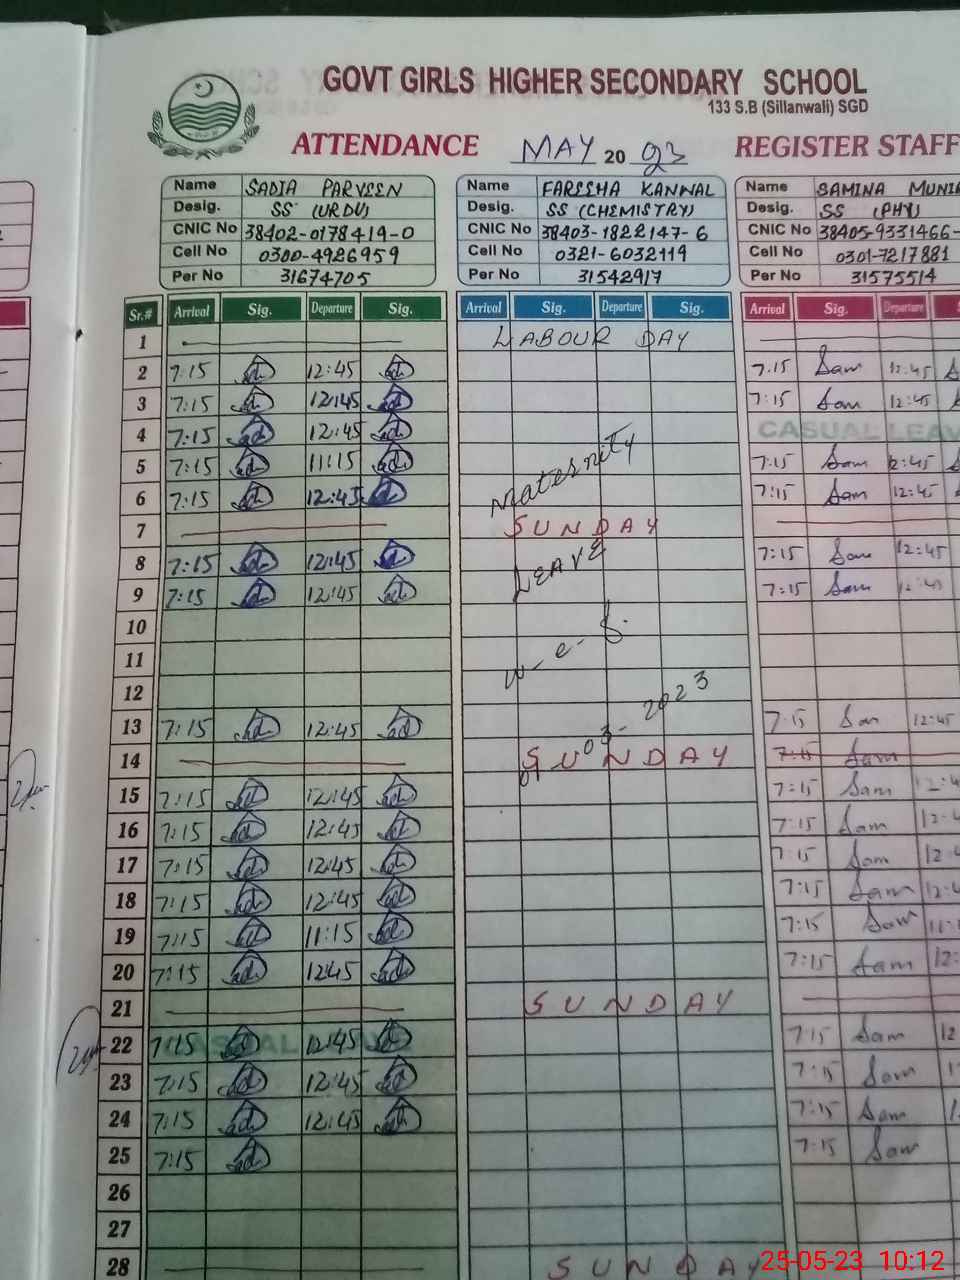 GOVT GIRLS HIGHER SECONDARY SCHOOL
133 S.B (Sillanwali) SGD
ATTENDANCE MAY 2023 REGISTER STAFF
Name SADIA PARVEEN Name FAREEHA KANWAL Name SAMINA
Desig. SS (URDU) Desig. SS (CHEMISTRY) Desig. SS (PHY)
CNIC No 38402-0178419-0 CNIC No 38403-1822147-6 CNIC No 38405-9331466-
Cell No 0300-4926959 Cell No 0321-6032119 Cell No 0301-7217881
Per No 31674705 Per No 31542917 Per No 31575514
Sr.# Arrival Sig. Departure Sig. Arrival Sig. Departure Sig. Arrival Sig. Departure S
1 LABOUR DAY
2 7:15 12:45 7:15 Sam 12:45
3 7:15 12:45 7:15 Sam 12:45
4 7:15 12:45 CASUAL LEAV
5 7:15 11:15 7:15 Sam 12:45
6 7:15 12:45 Maternity 7:15 Sam 12:45
7 SUNDAY
8 7:15 12:45 LEAVE 7:15 Sam 12:45
9 7:15 12:45 7:15 Sam 12:45
10
11 w-e-f.
12
13 7:15 12:45 01-03-2023 7:15 Sam 12:45
14 SUNDAY 7:15 Sam
15 7:15 12:45 7:15 Sam 12:4
16 7:15 12:45 7:15 Sam 12:4
17 7:15 12:45 7:15 Sam 12:4
18 7:15 12:45 7:15 Sam 12:4
19 7:15 11:15 7:15 Sam 11:1
20 7:15 12:45 7:15 Sam 12:
21 SUNDAY
22 7:15 12:45 CASUAL LEAVE 7:15 Sam 12
23 7:15 12:45 7:15 Sam
24 7:15 12:45 7:15 Sam
25 7:15 7:15 Sam
26
27
28 SUNDAY
25-05-23 10:12